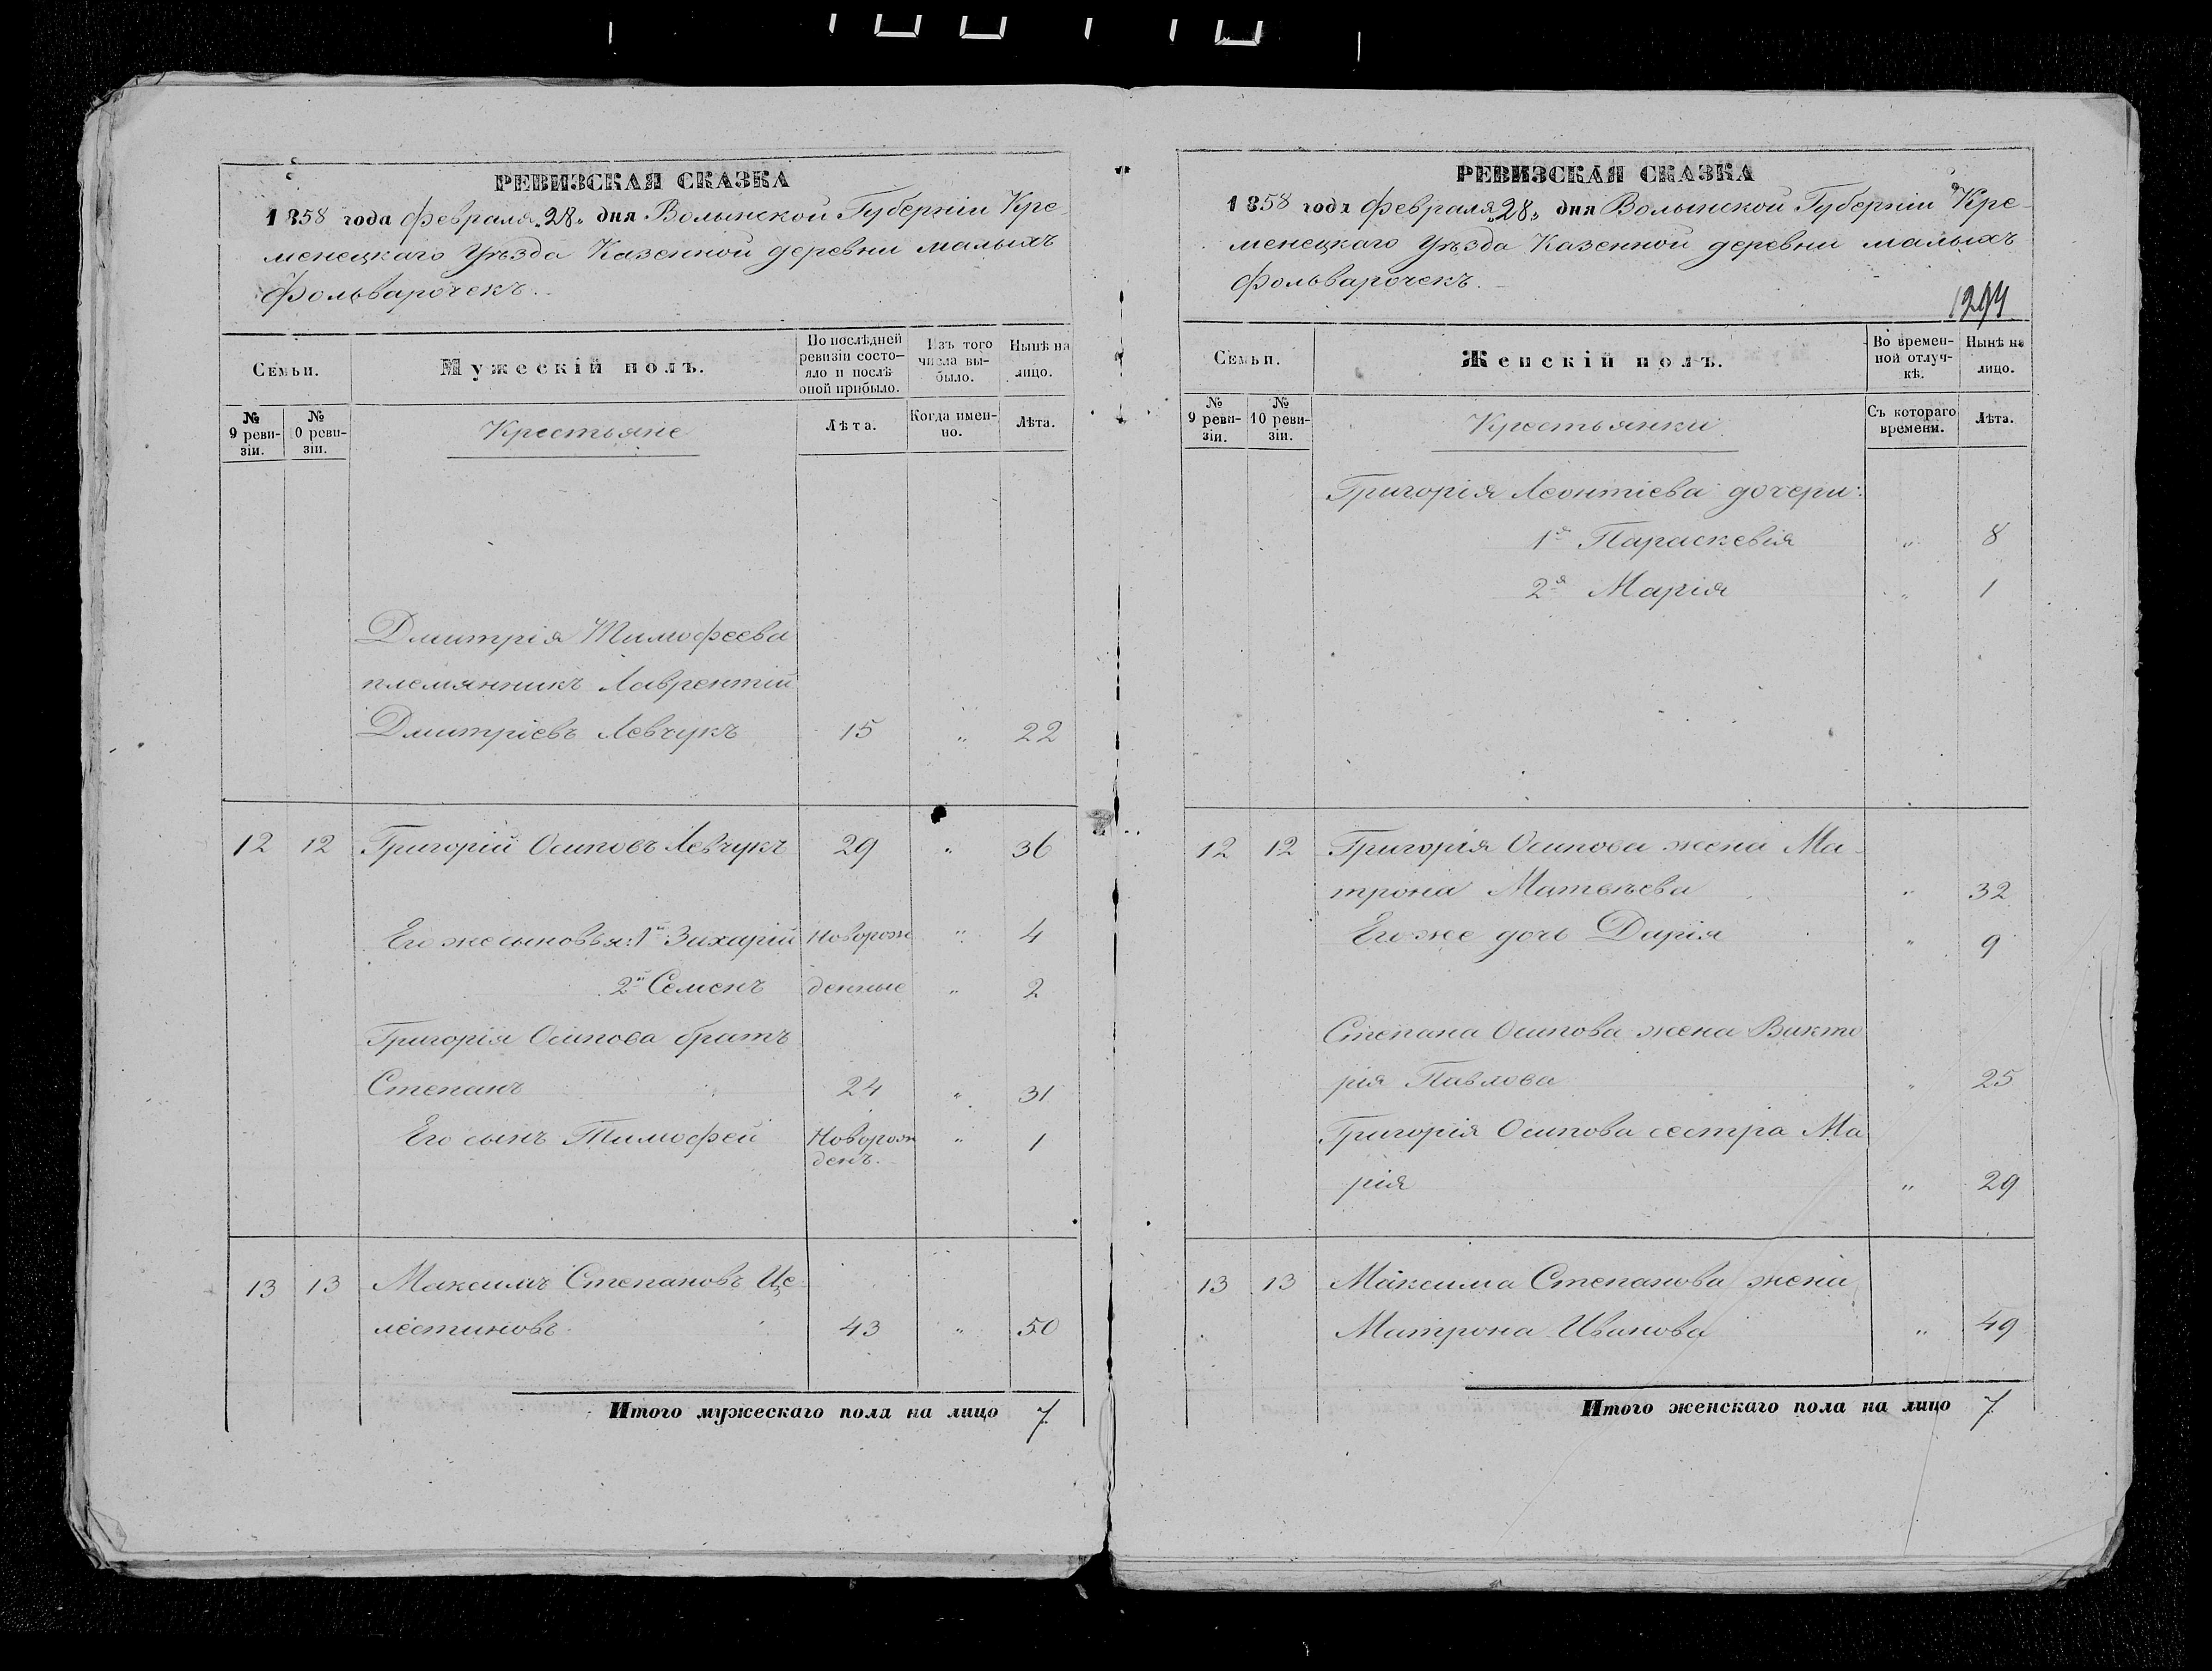 РЕВИЗСКАЯ СКАЗКА
1858 года Февраля „28„ дня Волынской Губерніи Кре-
менецкаго Уѣзда Казенной деревни малыхъ
Фольварочекъ.
Семьи.
Мужескій полъ.
По послѣдней ревизіи состо-
яло и послѣ оной прибыло.
Изъ того числа вы-
было.
Нынѣ на лицо.
№ 9 реви-
зіи.
№ 0 реви-
зіи.
Крестьяне
Лѣта.
Когда имен-
но.
Лѣта.
Дмитрія Тимофеева
племянникъ Лаврентій
Дмитріевъ Левчукъ 15 „ 22
12 12 Григорій Осиповъ Левчукъ 29 „ 36
Его же сыновья: 1й Захарій Новорож „ 4
2й Семенъ денные „ 2
Григорія Осипова братъ
Степанъ 24 „ 31
Его сынъ Тимофей Новорож „ 1
денъ.
13 13 Максимъ Степановъ Це-
лестиновъ 43 „ 50
Итого мужескаго пола на лицо 7
РЕВИЗСКАЯ СКАЗКА
1858 года Февраля „28„ дня Волынской Губерніи Кре-
менецкаго Уѣзда Казенной деревни малыхъ
Фольварочекъ.
Семьи.
Женскій полъ.
Во времен-
ной отлуч-
кѣ.
Нынѣ на лицо.
№ 9 реви-
зіи.
№ 10 реви-
зіи.
Крестьянки
Съ котораго времени.
Лѣта.
Григорія Леонтіева дочери:
1я Параскевія „ 8
2я Марія „ 1
12 12 Григорія Осипова жена Ма-
трона Матвѣева „ 32
Его же дочь Дарія „ 9
Степана Осипова жена Викто
рія Павлова „ 25
Григорія Осипова сестра Ма
рія „ 29
13 13 Максима Степанова жена
Матрона Иванова „ 49
Итого женскаго пола на лицо 7